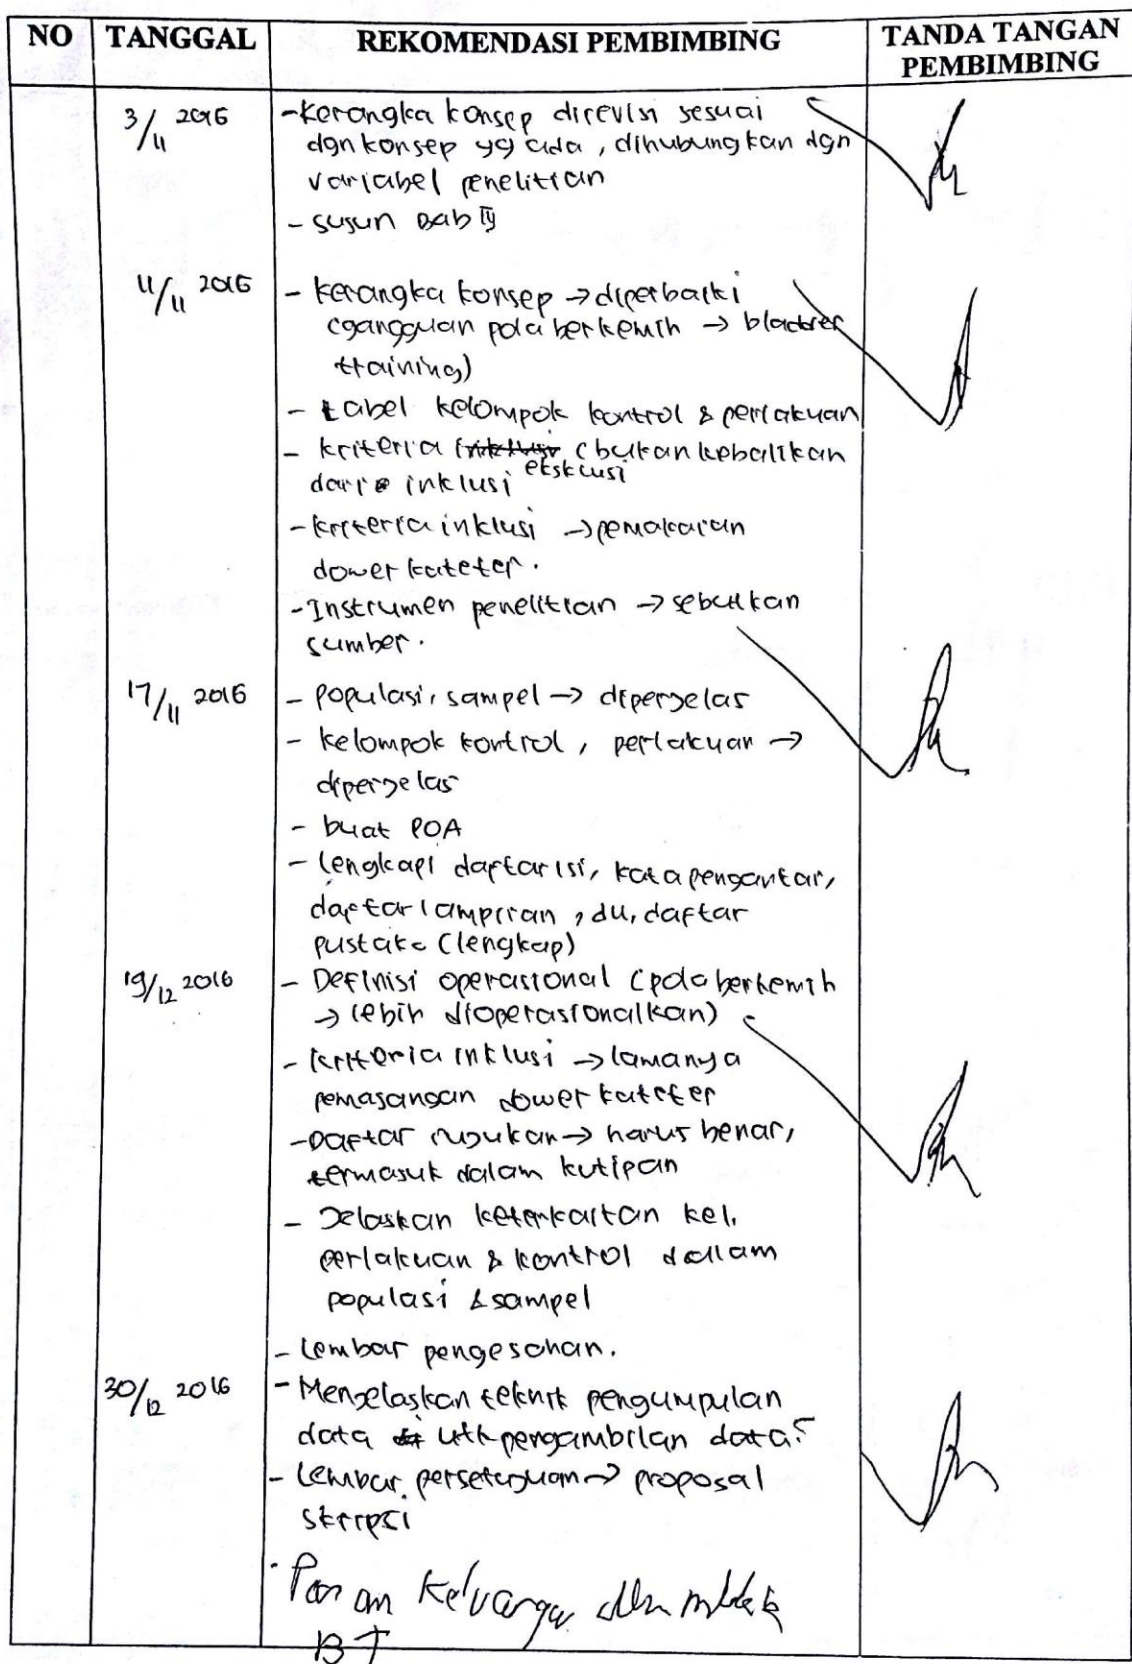 NO TANGGAL REKOMENDASI PEMBIMBING TANDA TANGAN PEMBIMBING
3/11 2016 - Kerangka konsep direvisi sesuai
dgn konsep yg ada, dihubungkan dgn
variabel penelitian
- susun Bab IV
11/11 2016 - kerangka konsep → diperbaiki
(gangguan pola berkemih → bladder
training)
- tabel kelompok kontrol & perlakuan
- kriteria inklusi eksklusi (bukan kebalikan
dari inklusi
- kriteria inklusi → pemakaian
dower kateter.
- Instrumen penelitian → sebutkan
sumber.
17/11 2016 - populasi, sampel → diperjelas
- kelompok kontrol, perlakuan →
diperjelas
- buat POA
- lengkapi daftar isi, kata pengantar,
daftar lampiran, du, daftar
pustaka (lengkap)
19/12 2016 - Definisi operasional (pola berkemih
→ lebih dioperasionalkan)
- kriteria inklusi → lamanya
pemasangan dower kateter
- Daftar rujukan → harus benar,
termasuk dalam kutipan
- Jelaskan keterkaitan kel.
perlakuan & kontrol dalam
populasi & sampel
- Lembar pengesahan.
30/12 2016 - Menjelaskan teknik pengumpulan
data utk pengambilan data?
- Lembar persetujuan → proposal
skripsi
- Peran keluarga dlm
BT